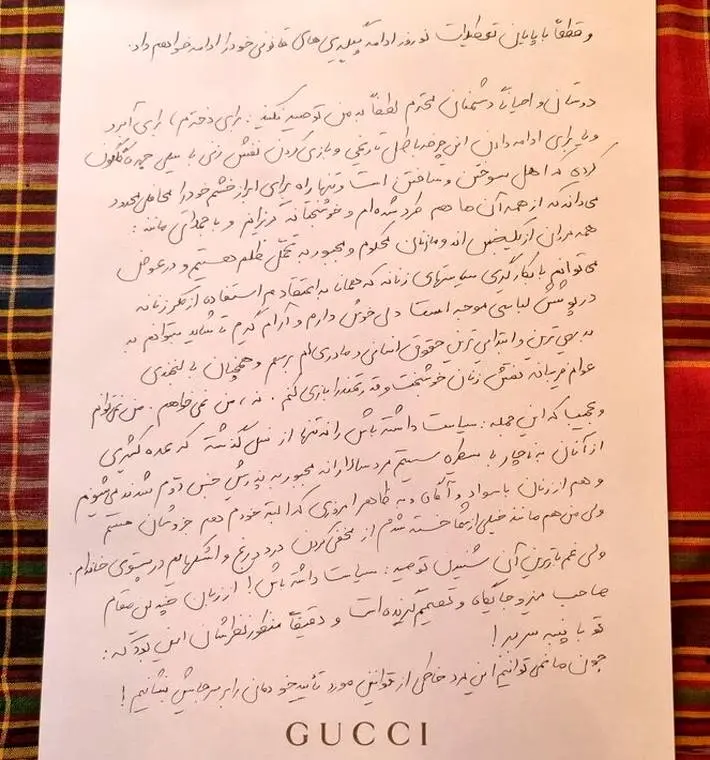 و قطعاً با پایان تعطیلات نوروز ادامه پیگیری‌های قانونی خود را ادامه خواهم داد.
دوستان و احیاناً دشمنان محترم لطفاً به من توصیه نکنید: برای دخترم، برای آبرو
و یا برای ادامه دادن این چرخه باطل تاریخی و بازی کردن نقش زنی با سیلی چهره گلگون
کرده که اهل سوختن و ساختن است و تنها راه برای ابراز خشم خود را محافل محدود
می‌داند که از همه آن‌ها هم طرد شده‌ام و خوشبختانه گریزانم و با جملاتی مانند:
همه مردان از یک جنس‌اند و ما زنان محکوم و مجبور به تحمّل ظلم هستیم و در عوض
می‌توانیم با بکارگیری سیاستهای زنانه که همانا به اعتقادم استفاده از مکر زنانه
در پوشش لباسی موجه است دلی خوش دارم و آرام گیرم تا شاید بتوانم به
بدیهی‌ترین و ابتدایی‌ترین حقوق انسانی و مادری‌ام برسم و همچنان با لبخندی
عوام فریبانه نقش زنان خوشبخت و قدرتمند را بازی کنم. نه، من نمی‌خواهم. من نمی‌توانم
و عجیب که این جمله: سیاست داشته باش را نه تنها از نسل گذشته که عده کثیری
از آنان به ناچار با سیطره سیستم مردسالارانه مجبور به پذیرش جنس دوّم شدند می‌شنویم
و هم از زنان باسواد و آگاه و به ظاهر امروزی که البته خودم هم جزوشان هستم
ولی من هم مانند خیلی از شما خسته شدم از مخفی کردن درد دروغ و اشکهایم در پستوی خانه‌ام.
ولی غم‌بارترین آن شنیدن توصیه: سیاست داشته باش! از زبان چندین مقام
صاحب میز و جایگاه و تصمیم گیرنده است و دقیقاً منظور نظرشان این بود که:
تو با پنبه سر ببر!
چون ما نمی‌توانیم این مرد خاطی از قوانین مورد تأیید خودمان را بر سر جایش بنشانیم!
GUCCI